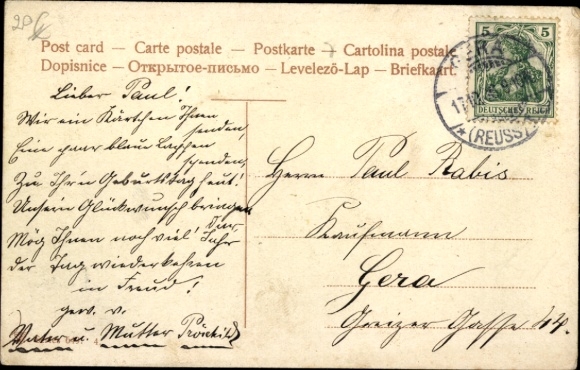 Post card — Carte postale — Postkarte — Cartolina postale
Dopisnice — Открытое-письмо — Levelező-Lap — Briefkaart.
5 5
DEUTSCHES REICH
GERA
(REUSS)
Lieber Paul!
Wir ein Kärtchen Ihnen
senden,
Eine paar blaue Lappen
spenden,
Zu Ihr'n Geburtstag heut!
Unsern Glückwunsch bringen
Mög Ihnen noch viel Jahr
der Tag wiederkehren
in Freud!
gew. v.
Vater u. Mutter
Herrn Paul Rabis
Kaufmann
Gera
Greizer Gasse 44.